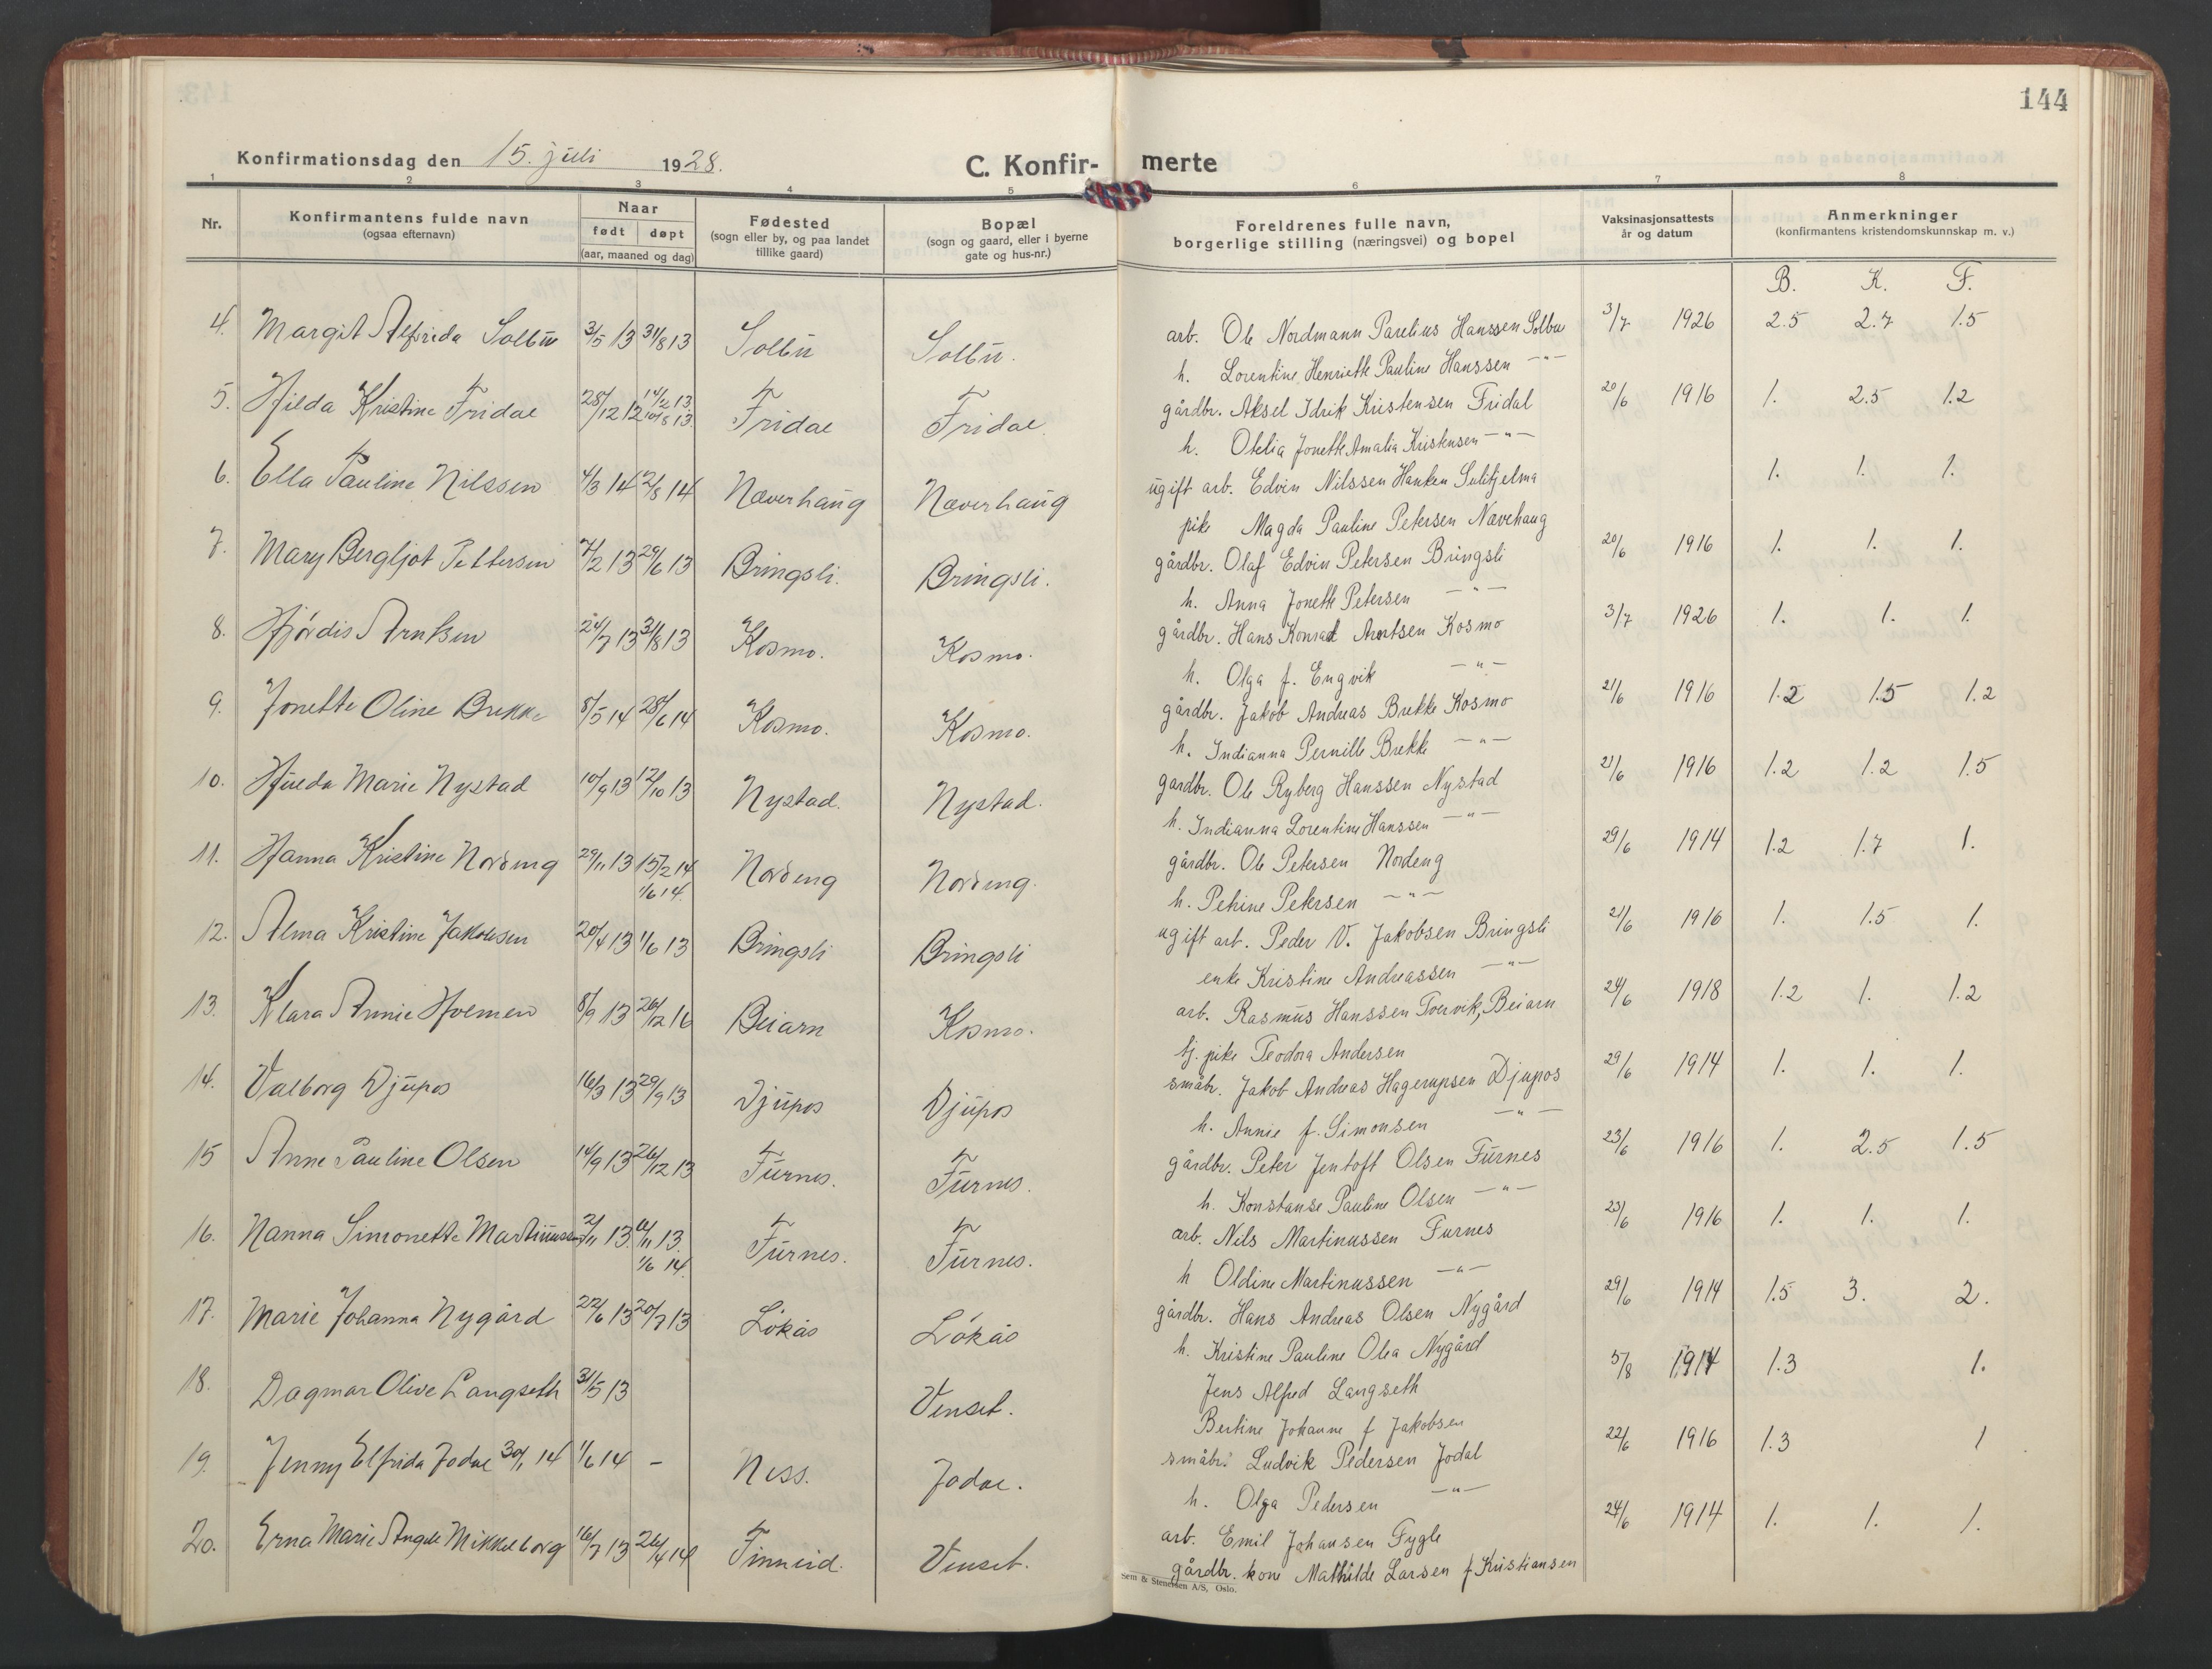 144
Konfirmationsdag den 15. juli 1928. C. Konfir- merte
1 2 3 4 5 6 7 8
Nr. Konfirmantens fulde navn (ogsaa efternavn) Naar født døpt (aar, maaned og dag) Fødested (sogn eller by, og paa landet tillike gaard) Bopæl (sogn og gaard, eller i byerne gate og hus-nr.) Foreldrenes fulle navn, borgerlige stilling (næringsvei) og bopel Vaksinasjonsattests år og datum Anmerkninger (konfirmantens kristendomskunnskap m. v.)
B. K. F.
4. Margit Alfrida Solbu 3/5 13 31/8 13 Solbu Solbu. arb. Ole Nordmann Parelius Hanssen Solbu 3/7 1926 2.5 2.7 1.5
h. Lorentine Henriette Pauline Hanssen -"-
5. Hilda Kristine Fridal 28/12 12 14/2 13 10/8 13. Fridal Fridal. gårdbr. Aksel Idrik Kristensen Fridal 20/6 1916 1. 2.5 1.2
h. Otelia Jonette Amalia Kristensen -"-
6. Ella Pauline Nilssen 4/3 14 2/8 14 Næverhaug Næverhaug ugift arb. Edvin Nilssen Hanken Sulitjelma 1. 1. 1.
pike Magda Pauline Petersen Nævehaug
7. Mary Bergljot Pettersen 7/2 13 29/6 13 Bringsli. Bringsli. gårdbr. Olaf Edvin Petersen Bringsli 20/6 1916 1. 1. 1.
h. Anna Jonette Petersen -"-
8. Hjørdis Arntsen 24/7 13 31/8 13 Kosmo. Kosmo. gårdbr. Hans Konrad Arntsen Kosmo 3/7 1926 1. 1. 1.
h. Olga f. Engvik -"-
9. Jonette Oline Brekke 8/5 14 28/6 14 Kosmo. Kosmo. gårdbr. Jakob Andreas Brekke Kosmo 21/6 1916 1.2 1.5 1.2
h. Indianna Pernille Brekke -"-
10. Hulda Marie Nystad 10/9 13 12/10 13 Nystad. Nystad. gardbr. Ole Ryberg Hanssen Nystad 21/6 1916 1.2 1.2 1.5
h. Indianna Lorentine Hanssen -"-
11. Hanna Kristine Nordeng 29/11 13 15/2 14 1/6 14. Nordeng Nordeng. gårdbr. Ole Petersen Nordeng 29/6 1914 1.2 1.7 1.
h. Petrine Petersen -"-
12. Alma Kristine Jakobsen 20/4 13 1/6 13 Bringsli Bringsli ugift arb. Peder V. Jakobsen Bringsli 21/6 1916 1. 1.5 1.
enke Kristine Andreassen -"-
13. Klara Annie Holmen 8/9 13 26/12 16 Beiarn Kosmo. arb. Rasmus Hanssen Tvervik, Beiarn 24/6 1918 1.2 1. 1.2
tj. pike Teodora Andersen
14. Valborg Djupos 16/3 13 29/9 13 Djupos Djupos småbr. Jakob Andreas Hagerupsen Djupos 29/6 1914 1. 1. 1.
h. Annie f. Simonsen -"-
15 Anne Pauline Olsen 14/9 13 26/12 13 Furnes. Furnes. gårdbr. Peter Jentoft Olsen Furnes 23/6 1916 1. 2.5 1.5
h. Konstanse Pauline Olsen -"-
16. Nanna Simonette Martinussen 2/11 13. 6/11 13. 1/6 14. Furnes. Furnes. arb. Nils Martinussen Furnes 23/6 1916 1. 1. 1.
h Oldine Martinussen -"-
17. Marie Johanna Nygård 22/6 13 20/7 13 Løkås Løkås gårdbr. Hans Andreas Olsen Nygård 29/6 1914 1.5 3. 2.
h. Kristine Pauline Olea Nygård
18. Dagmar Olive Langseth 31/5 13 Venset. Jens Alfred Langseth 5/8 1914 1.3 1.
Bertine Johanne f Jakobsen
19. Jenny Elfrida Jodal 30/1 14 1/6 14 - Ness. Jodal. småbr. Ludvik Pedersen Jodal 22/6 1916 1.3 1
h. Olga Pedersen -"-
20. Erna Marie Angele Mikkelborg 16/7 13 26/4 14 Finneid. Venset. arb. Emil Johansen Fygle 24/6 1914 1. 1. 1.
gårdbr. kone Mathilde Larsen f Kristiansen
Sem & Stenersen A/S, Oslo.